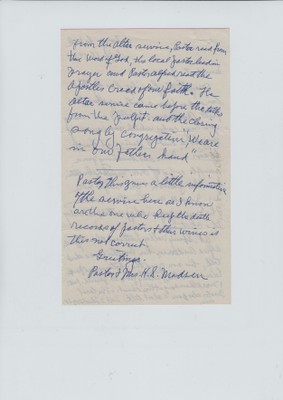 From the alter service, Pastor read from
the Word of God, the local pastor lead in
prayer and Pastor Alfred read the
Apostles Creed of our Faith. The
alter service came before the talks
from the Pulpit. and the closing
song by congregation "We are
in our Fathers hand"
Pastor, this gives a little information
of the service here as I know
are the one who keep the death
records of pastors & their wives is
this not correct.
Greetings.
Pastor & Mrs. H. C. Madsen